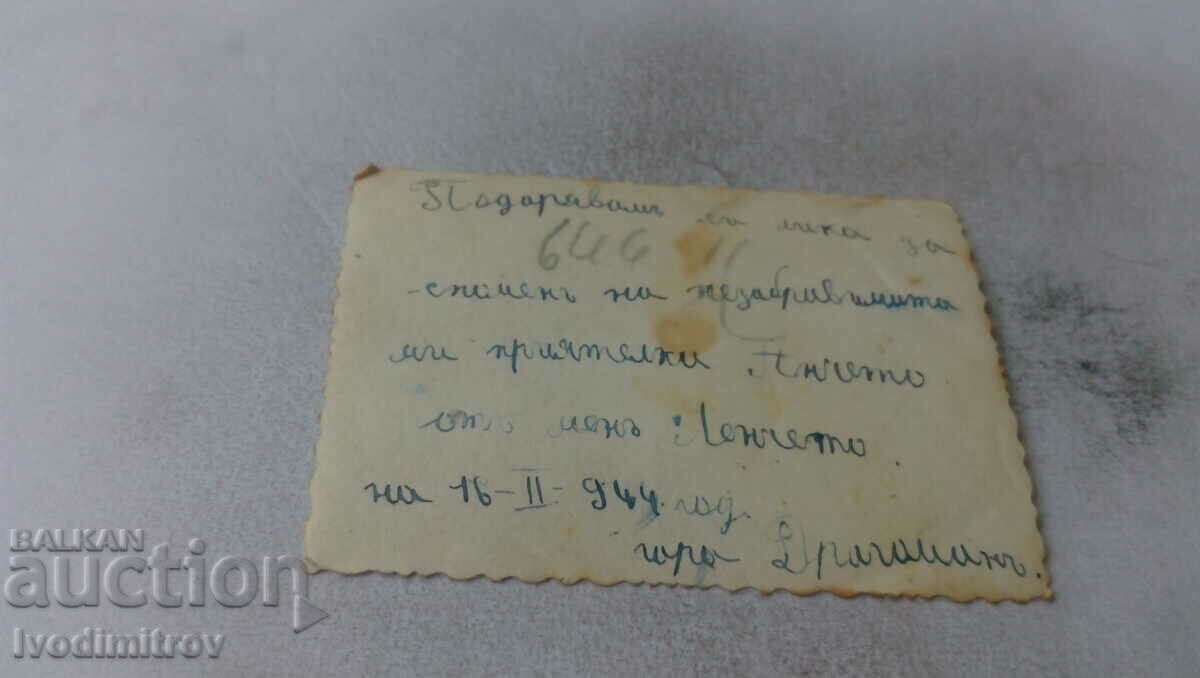 Подорявамъ си лика за
644
споменъ на незабравимита
ми приятелки Анчето
отъ менъ Ленчето.
на 16-II-944 год.
гара Драгоманъ.
BALKAN
auction
Ivodimitrov